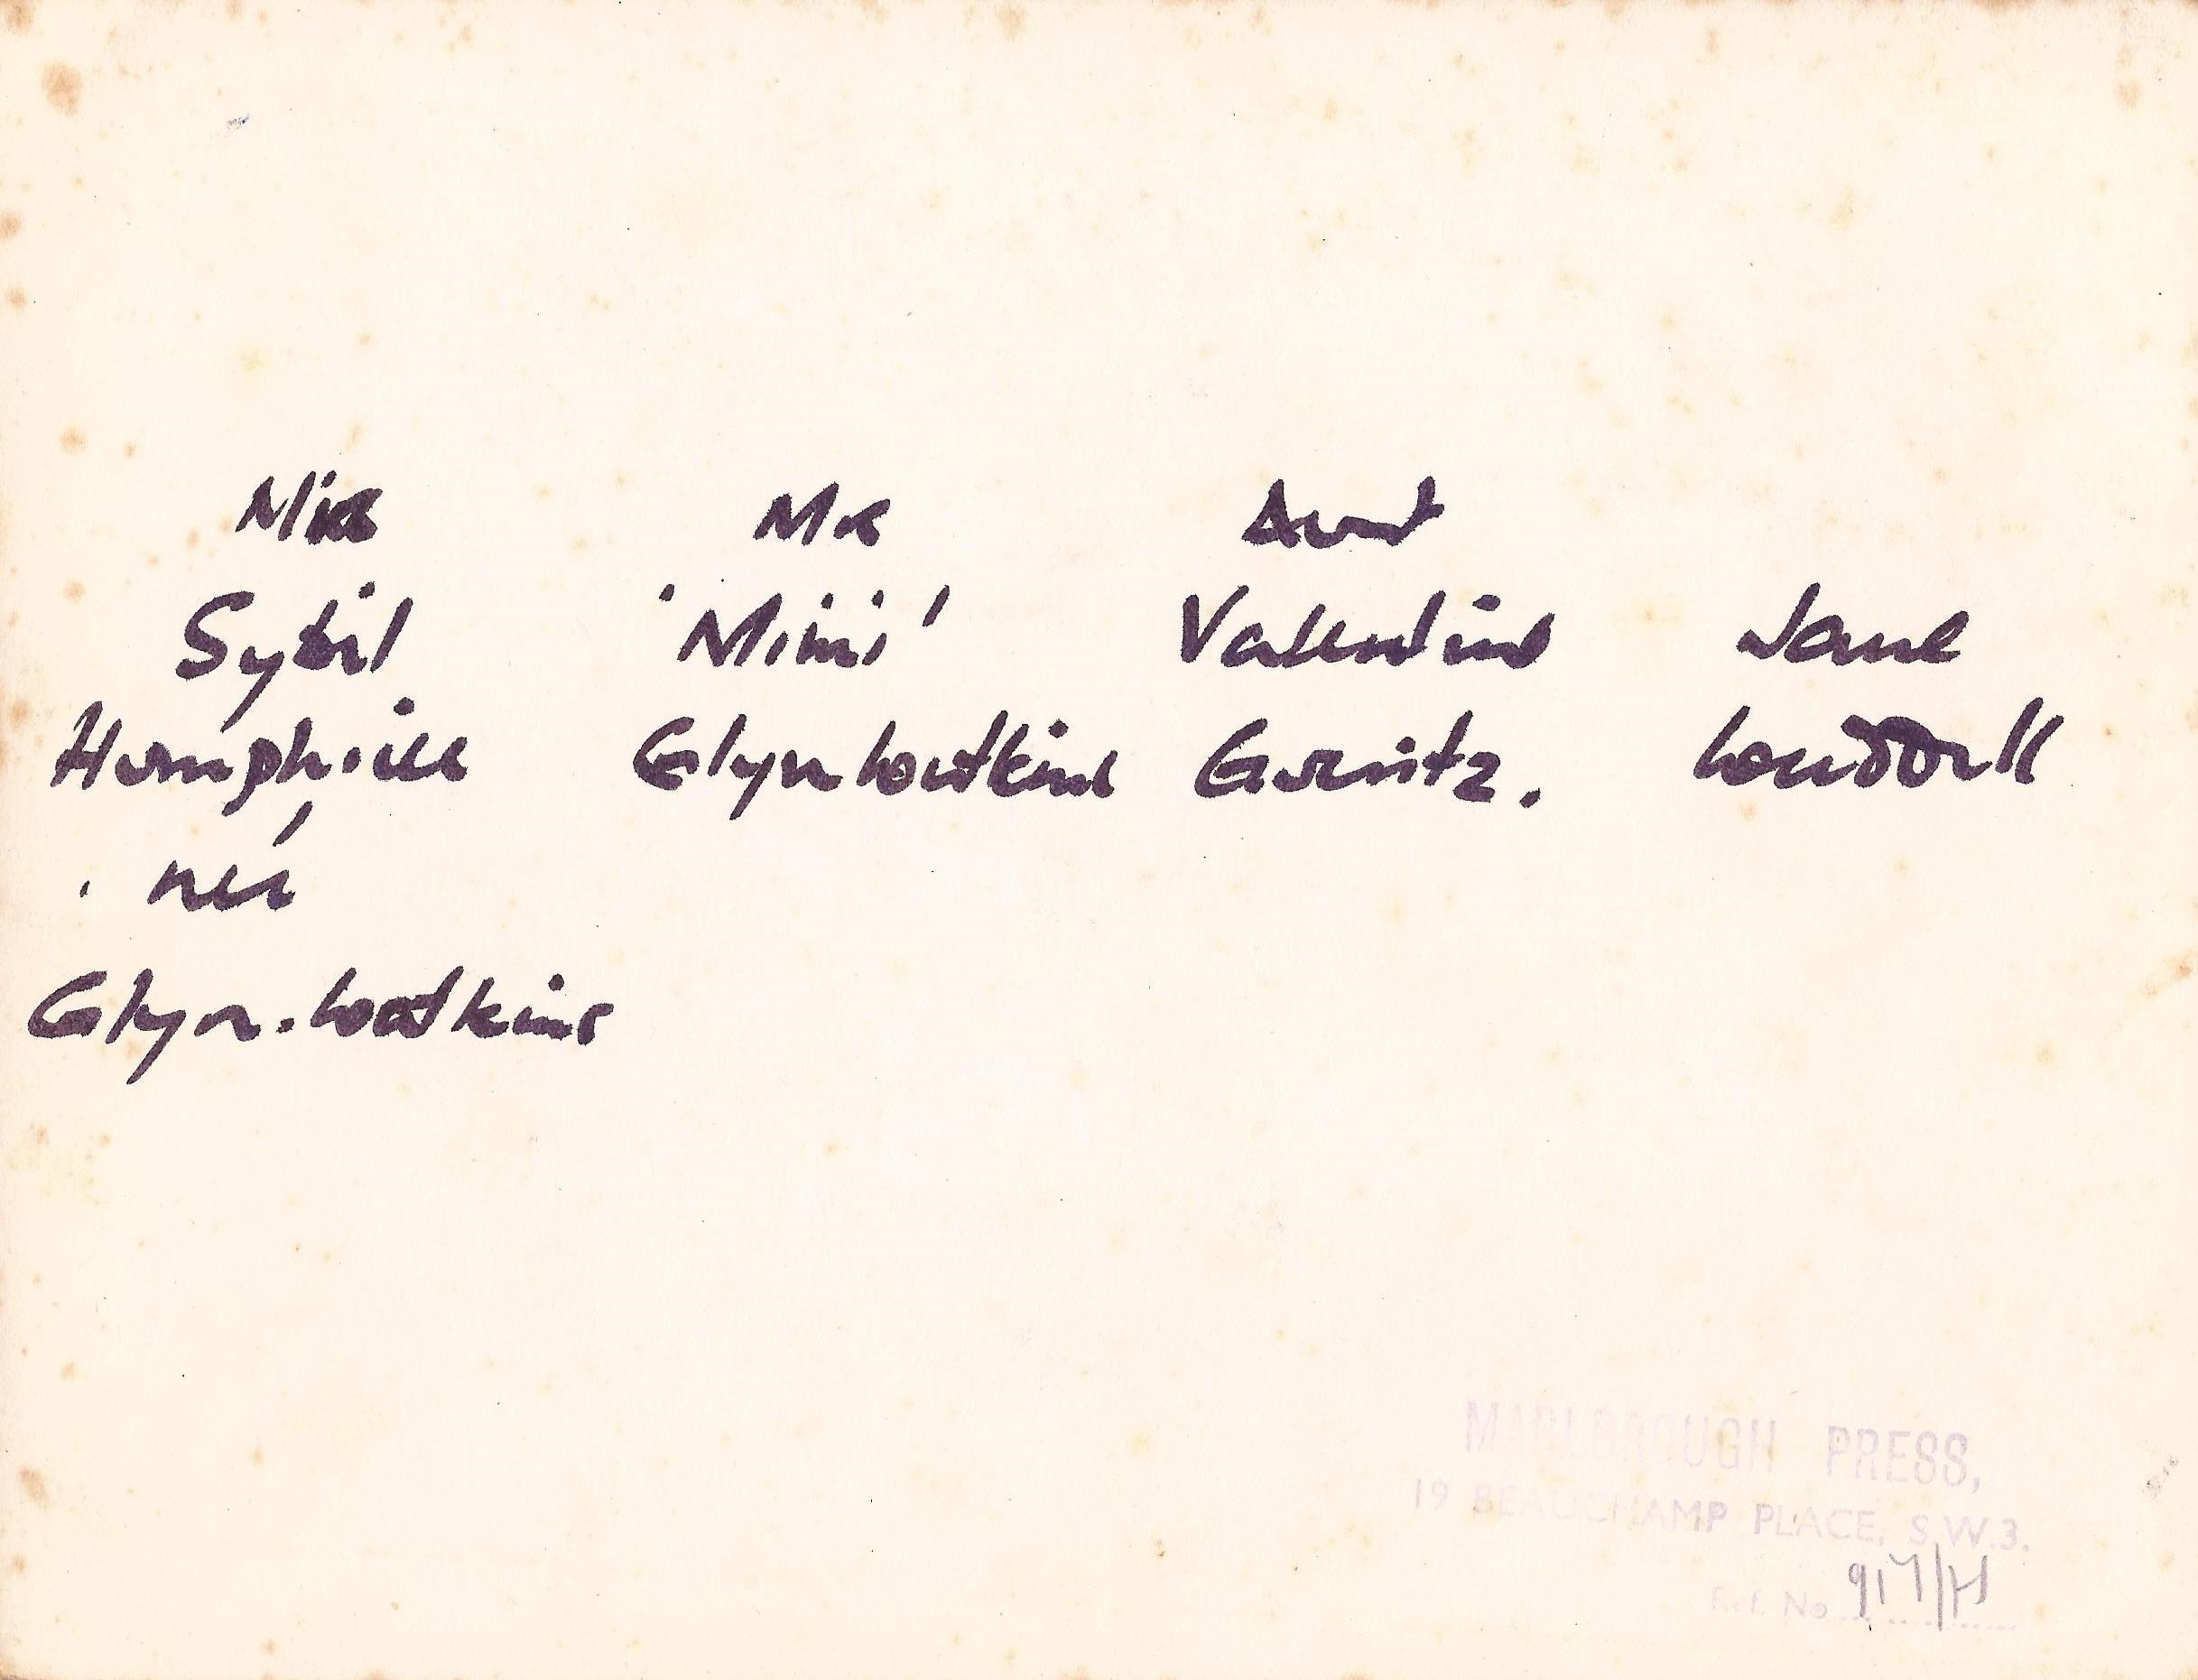 Mrs Mrs Aunt
Sybil 'Mimi' Valentine Jane
Humphries Glyn Watkins Gueritz.
née
Glyn-Watkins
MARLBOROUGH PRESS,
19 BEAUCHAMP PLACE, S.W.3.
Ref. No 917/H